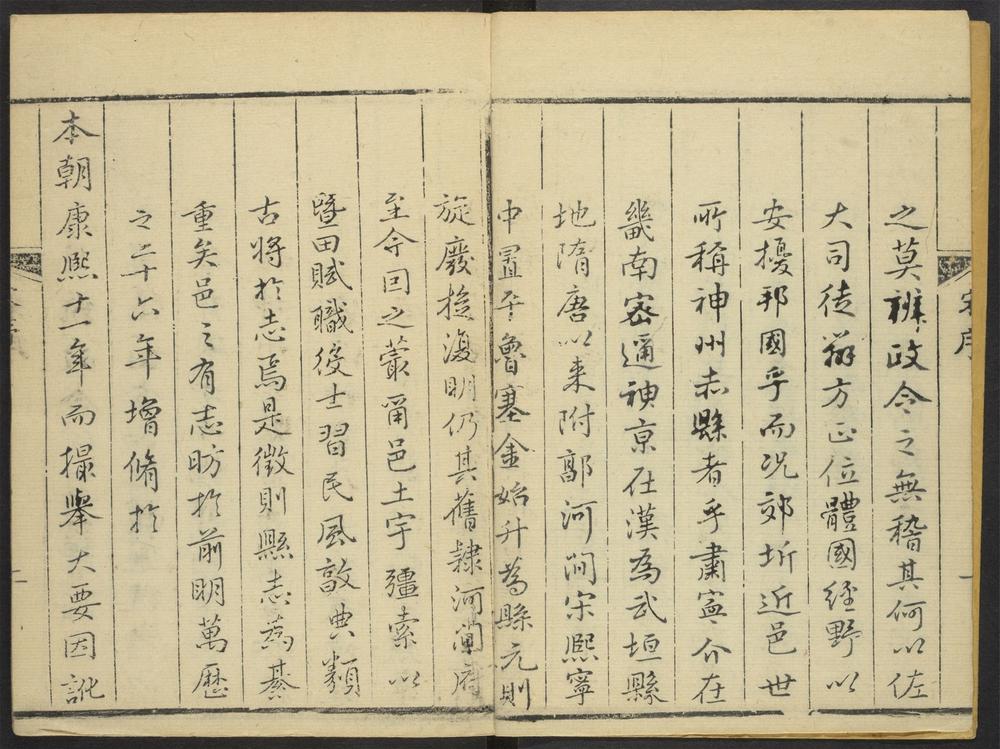 之莫辨政令之無稽其何以佐
大司徒辨方正位體國經野以
安擾邦國乎而况郊圻近邑世
所稱神州赤縣者乎肅寧介在
畿南密邇神京在漢為武垣縣
地隋唐以来附鄚河間宋熙寧
中置平魯塞金始升為縣元則
旋廢旋復明仍其舊隸河間府
至今回之蕞爾邑土宇疆索以
暨田賦職役士習民風散典類
古將於志焉是徵則縣志為綦
重矣邑之有志昉於前明萬歷
之二十六年增脩於
本朝康熙十一年而撮舉大要因訛
序
一